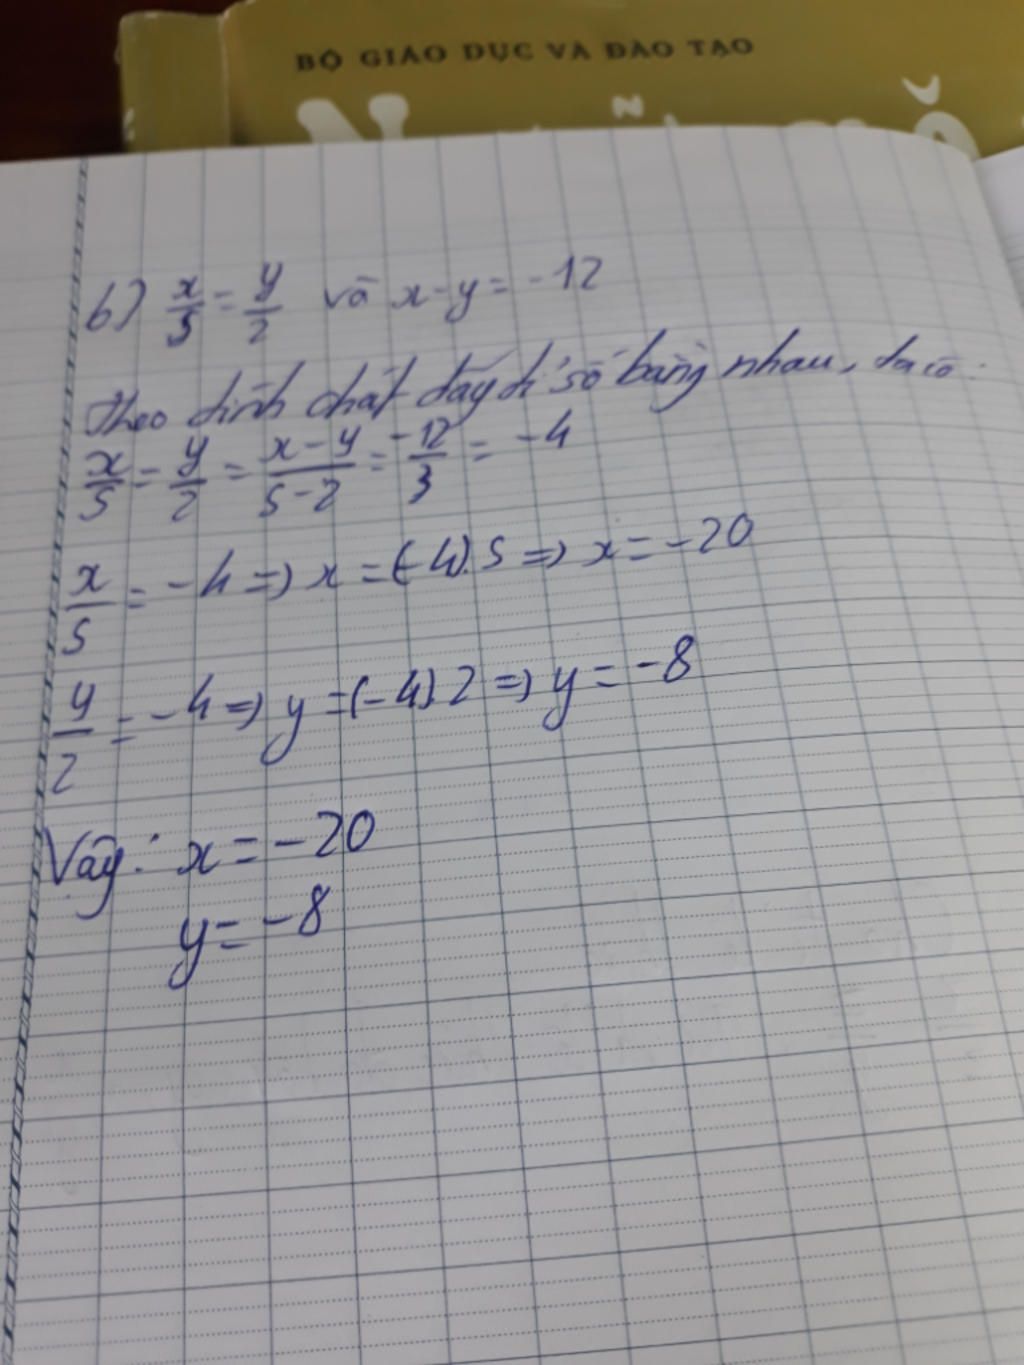 BỘ GIÁO DỤC VÀ ĐÀO TẠO
b) x/5 = y/2 và x-y = -12
Theo tính chất dãy tỉ số bằng nhau, ta có:
x/5 = y/2 = x-y/5-2 = -12/3 = -4
x/5 = -4 => x = (-4).5 => x = -20
y/2 = -4 => y = (-4).2 => y = -8
Vậy: x = -20
y = -8